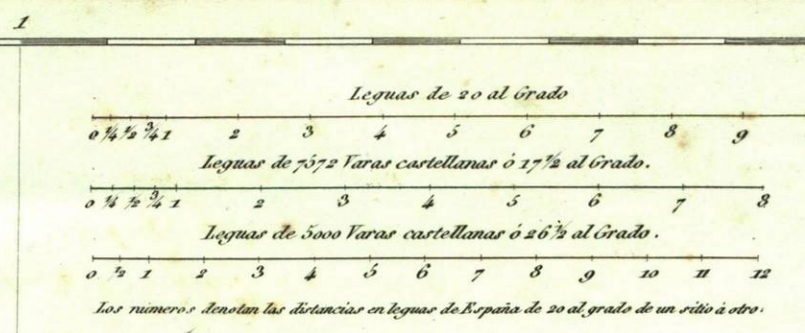 1
Leguas de 20 al Grado
0 ¼ ½ ¾ 1 2 3 4 5 6 7 8 9
Leguas de 7572 Varas castellanas ó 17½ al Grado.
0 ¼ ½ ¾ 1 2 3 4 5 6 7 8
Leguas de 5000 Varas castellanas ó 26½ al Grado.
0 ½ 1 2 3 4 5 6 7 8 9 10 11 12
Los números denotan las distancias en leguas de España de 20 al grado de un sitio à otro.